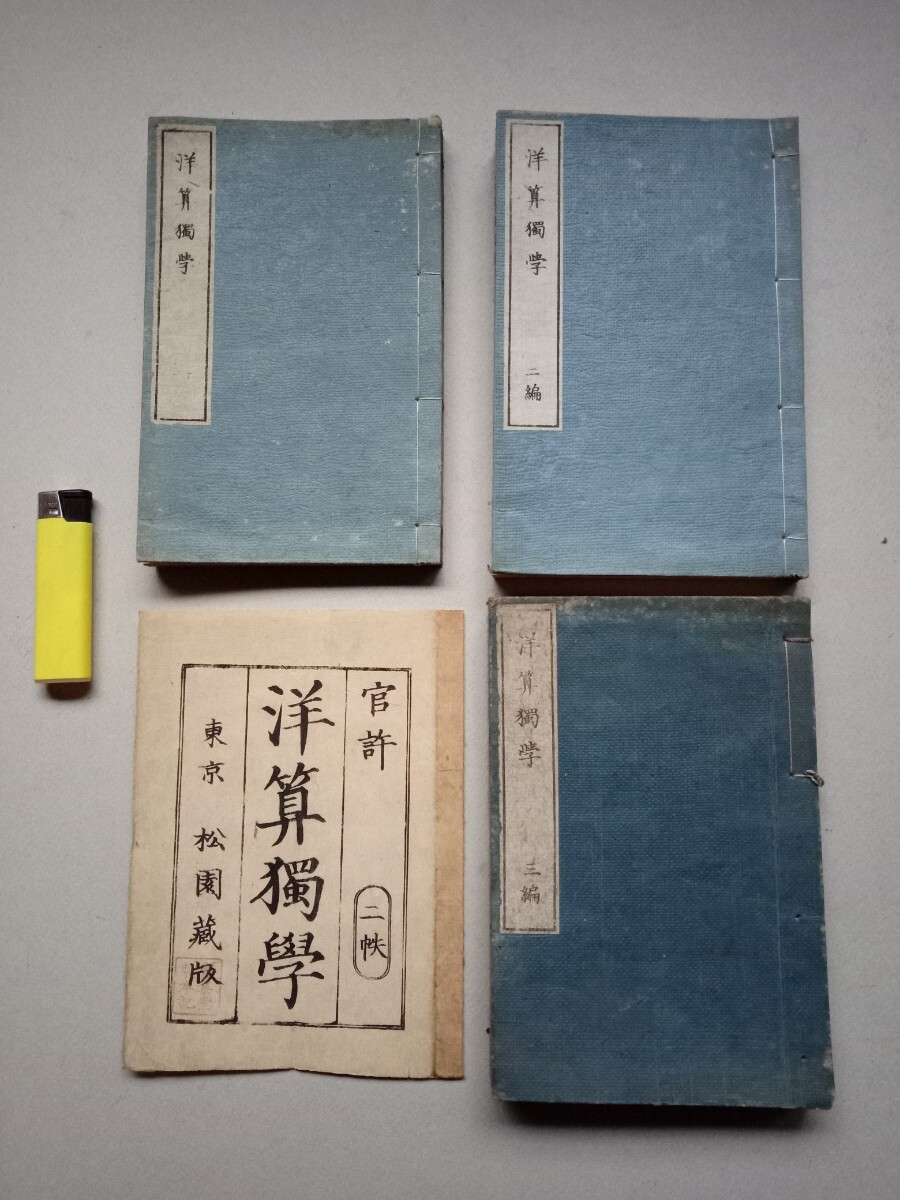 洋算獨学
洋算獨学
二編
官許
二帙
洋算獨學
東京 松園藏版
洋算獨学
三編